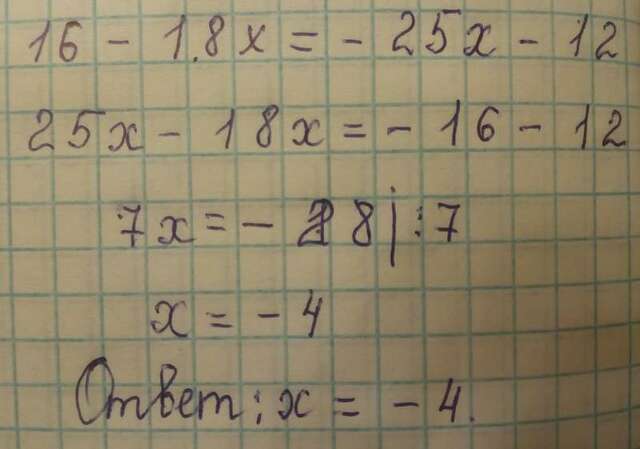 16 - 18x = - 25x - 12
25x - 18x = - 16 - 12
7x = - 28 | : 7
x = - 4
Ответ: x = - 4.